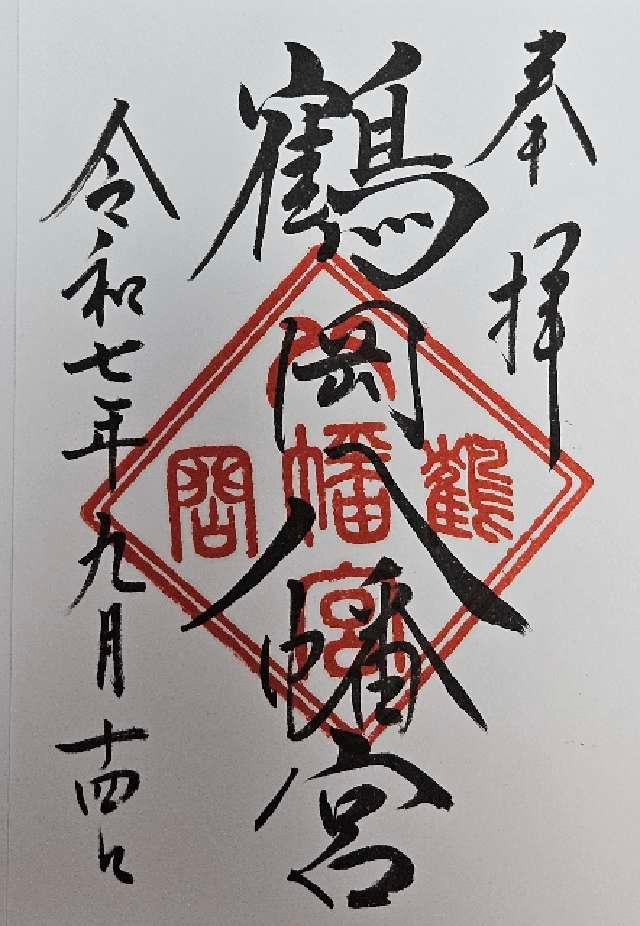 奉拝
鶴岡八幡宮
鶴
八幡宮
岡
令和七年九月十四日